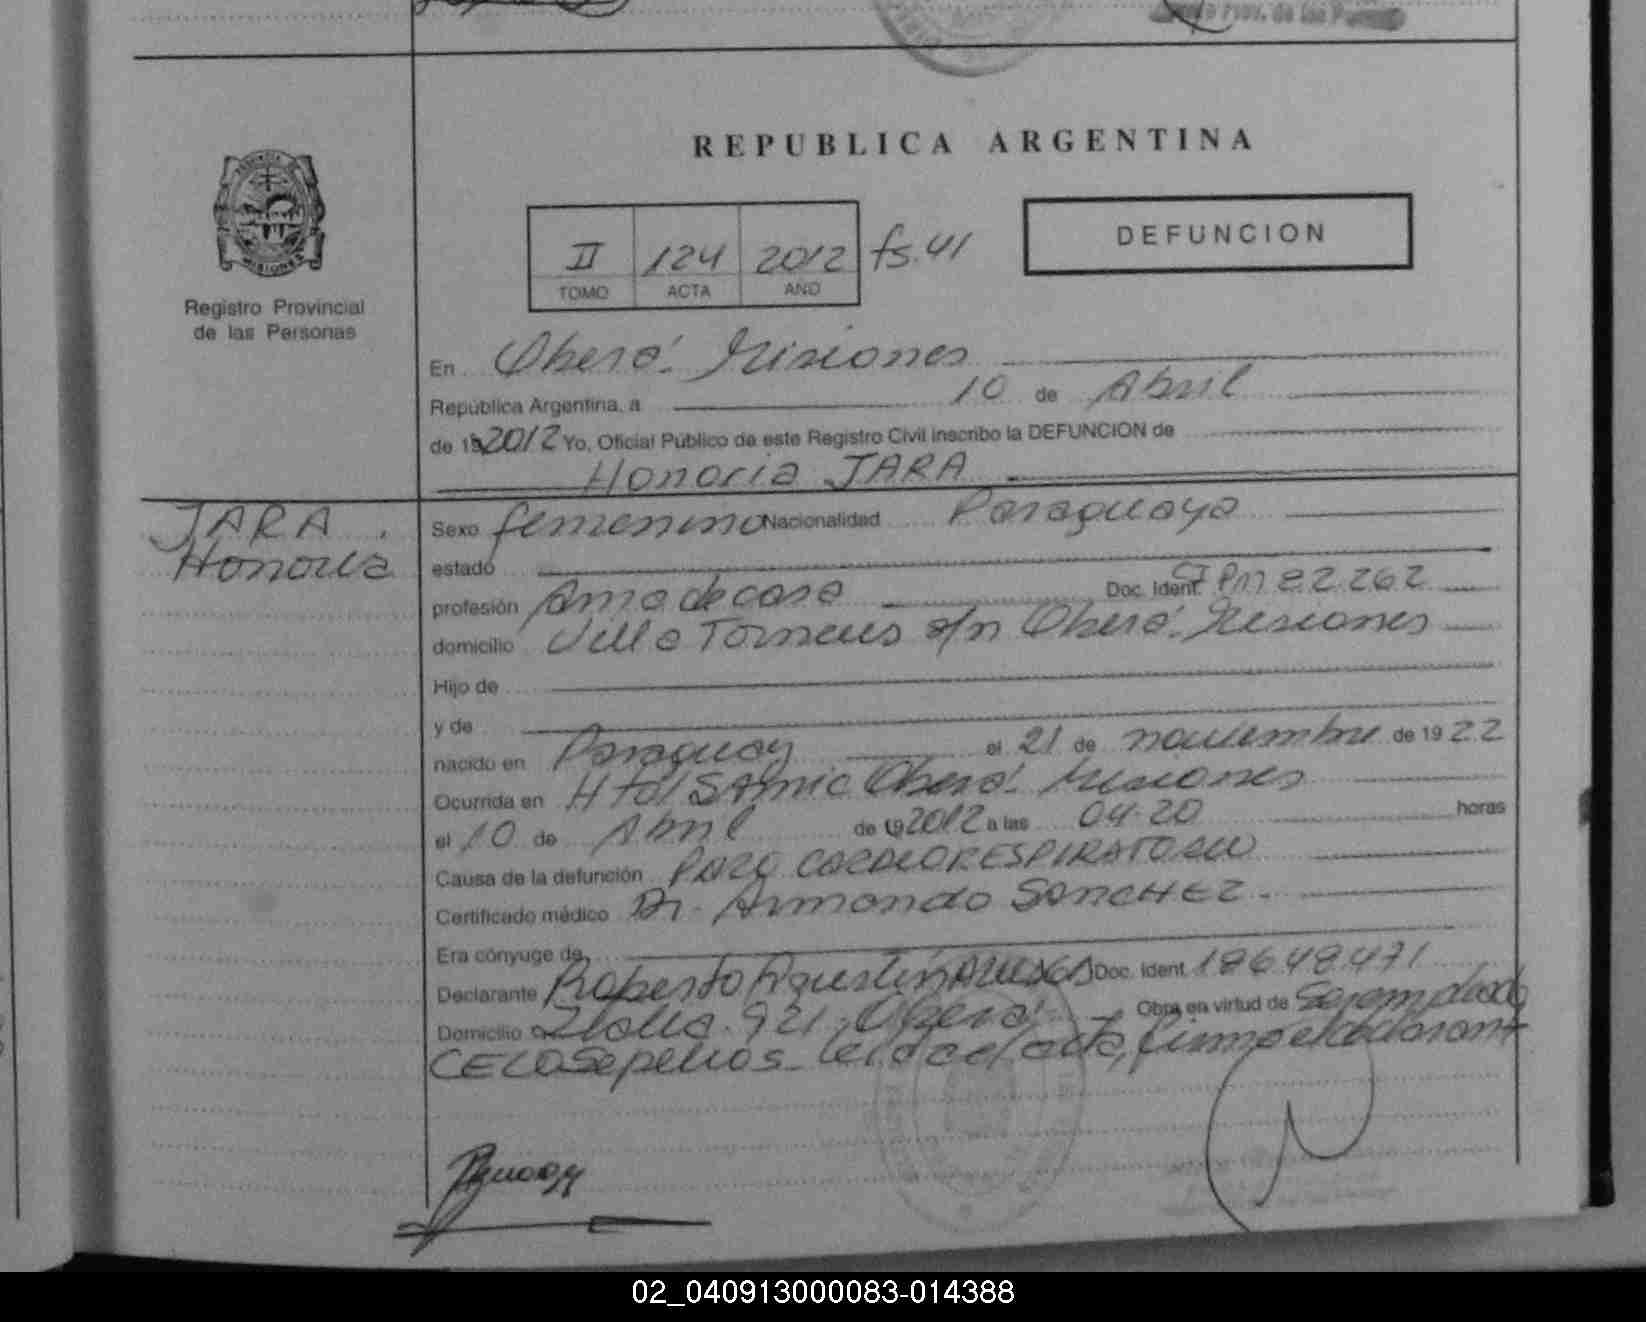 REPUBLICA ARGENTINA
MISIONES
Registro Provincial
de las Personas
II 124 2012 fs. 41
TOMO ACTA AÑO
DEFUNCION
En Oberá. Misiones
República Argentina, a 10 de Abril
de 192012 Yo, Oficial Público de este Registro Civil inscribo la DEFUNCION de
Honoria JARA
JARA
Honoria
Sexo femenino Nacionalidad Paraguaya
estado
profesión Ama de casa Doc. Ident. CI PM 82.262
domicilio Villa Torneus s/n Oberá. Misiones
Hijo de
y de
nacido en Paraguay el 21 de noviembre de 1922
Ocurrida en Htal SAMIC Oberá. Misiones
el 10 de Abril de 192012 a las 04.20 horas
Causa de la defunción PARO CARDIORESPIRATORIO
Certificado médico Dr. Armando SANCHEZ.
Era cónyuge de
Declarante Roberto Agustín Doc. Ident 18648471
Domicilio Italia. 921. Oberá Obra en virtud de Ser empleado
CELO Sepelios. Leida el acta, firma el declarante
02_040913000083-014388